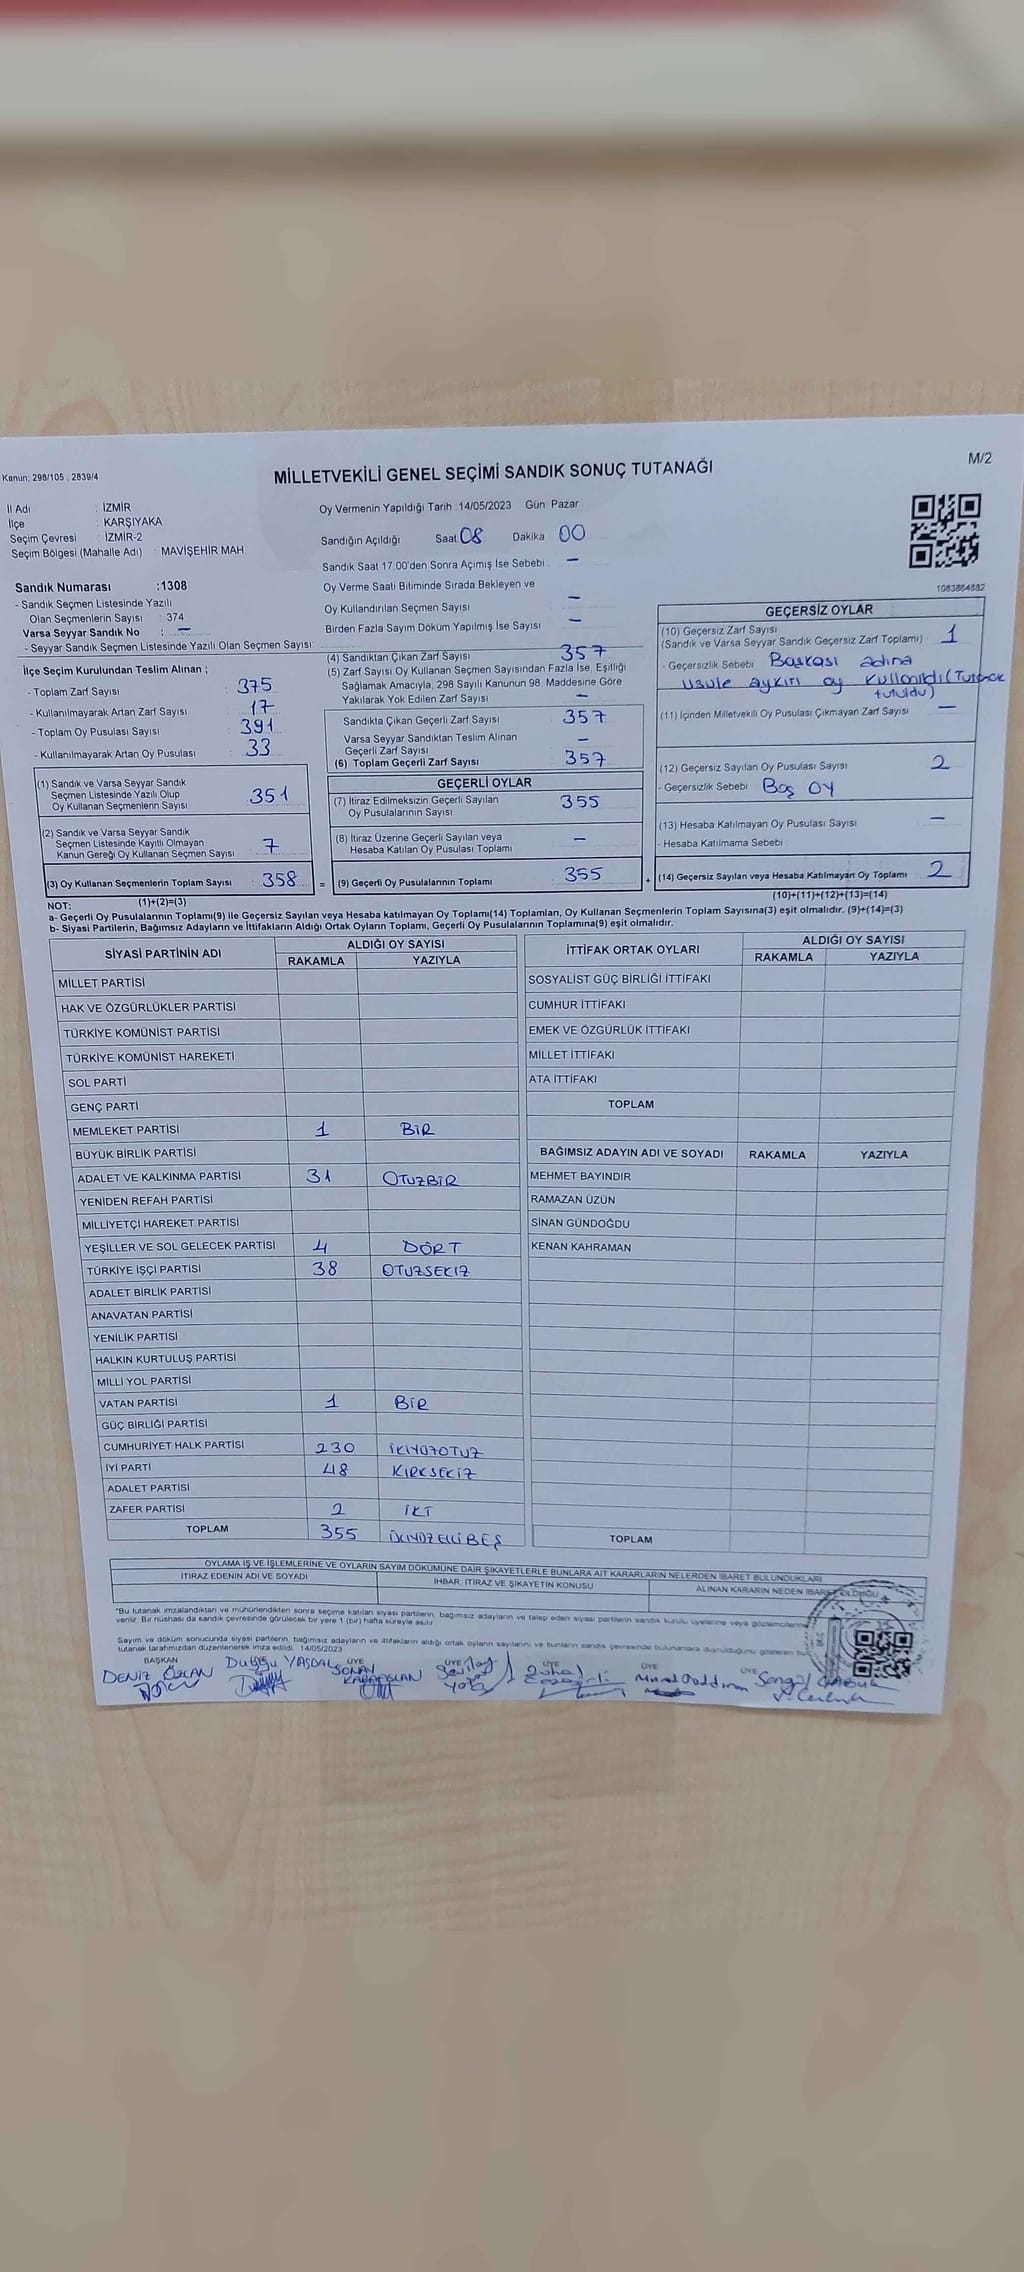 Kanun; 298/105 , 2839/4
MİLLETVEKİLİ GENEL SEÇİMİ SANDIK SONUÇ TUTANAĞI
M/2
İl Adı : İZMİR
İlçe : KARŞIYAKA
Seçim Çevresi : İZMİR-2
Seçim Bölgesi (Mahalle Adı) : MAVİŞEHİR MAH
Oy Vermenin Yapıldığı Tarih : 14/05/2023 Gün Pazar
Sandığın Açıldığı Saat 08 Dakika 00
Sandık Saat 17.00'den Sonra Açımış İse Sebebi : —
Oy Verme Saati Bitiminde Sırada Bekleyen ve
Oy Kullandırılan Seçmen Sayısı —
Birden Fazla Sayım Döküm Yapılmış İse Sayısı —
1083864882
Sandık Numarası :1308
- Sandık Seçmen Listesinde Yazılı
Olan Seçmenlerin Sayısı : 374
Varsa Seyyar Sandık No : —
- Seyyar Sandık Seçmen Listesinde Yazılı Olan Seçmen Sayısı:
İlçe Seçim Kurulundan Teslim Alınan ;
- Toplam Zarf Sayısı : 375
- Kullanılmayarak Artan Zarf Sayısı : 17
- Toplam Oy Pusulası Sayısı : 391
- Kullanılmayarak Artan Oy Pusulası : 33
(1) Sandık ve Varsa Seyyar Sandık
Seçmen Listesinde Yazılı Olup
Oy Kullanan Seçmenlerin Sayısı : 351
(2) Sandık ve Varsa Seyyar Sandık
Seçmen Listesinde Kayıtlı Olmayan
Kanun Gereği Oy Kullanan Seçmen Sayısı : 7
(3) Oy Kullanan Seçmenlerin Toplam Sayısı : 358 =
(1)+(2)=(3)
(4) Sandıktan Çıkan Zarf Sayısı 357
(5) Zarf Sayısı Oy Kullanan Seçmen Sayısından Fazla İse, Eşitliği
Sağlamak Amacıyla, 298 Sayılı Kanunun 98. Maddesine Göre
Yakılarak Yok Edilen Zarf Sayısı —
Sandıkta Çıkan Geçerli Zarf Sayısı 357
Varsa Seyyar Sandıktan Teslim Alınan
Geçerli Zarf Sayısı —
(6) Toplam Geçerli Zarf Sayısı 357
GEÇERLİ OYLAR
(7) İtiraz Edilmeksizin Geçerli Sayılan
Oy Pusulalarının Sayısı 355
(8) İtiraz Üzerine Geçerli Sayılan veya
Hesaba Katılan Oy Pusulası Toplamı —
(9) Geçerli Oy Pusulalarının Toplamı 355 +
GEÇERSİZ OYLAR
(10) Geçersiz Zarf Sayısı
(Sandık ve Varsa Seyyar Sandık Geçersiz Zarf Toplamı) 1
- Geçersizlik Sebebi Başkası adına
usule aykırı oy kullanıldı (Tutanak
tutuldu)
(11) İçinden Milletvekili Oy Pusulası Çıkmayan Zarf Sayısı —
(12) Geçersiz Sayılan Oy Pusulası Sayısı 2
- Geçersizlik Sebebi Boş OY
(13) Hesaba Katılmayan Oy Pusulası Sayısı —
- Hesaba Katılmama Sebebi
(14) Geçersiz Sayılan veya Hesaba Katılmayan Oy Toplamı 2
(10)+(11)+(12)+(13)=(14)
NOT:
a- Geçerli Oy Pusulalarının Toplamı(9) ile Geçersiz Sayılan veya Hesaba katılmayan Oy Toplamı(14) Toplamları, Oy Kullanan Seçmenlerin Toplam Sayısına(3) eşit olmalıdır. (9)+(14)=(3)
b- Siyasi Partilerin, Bağımsız Adayların ve İttifakların Aldığı Ortak Oyların Toplamı, Geçerli Oy Pusulalarının Toplamına(9) eşit olmalıdır.
SİYASİ PARTİNİN ADI ALDIĞI OY SAYISI
RAKAMLA YAZIYLA
MİLLET PARTİSİ
HAK VE ÖZGÜRLÜKLER PARTİSİ
TÜRKİYE KOMÜNİST PARTİSİ
TÜRKİYE KOMÜNİST HAREKETİ
SOL PARTİ
GENÇ PARTİ
MEMLEKET PARTİSİ 1 BİR
BÜYÜK BİRLİK PARTİSİ
ADALET VE KALKINMA PARTİSİ 31 OTUZBİR
YENİDEN REFAH PARTİSİ
MİLLİYETÇİ HAREKET PARTİSİ
YEŞİLLER VE SOL GELECEK PARTİSİ 4 DÖRT
TÜRKİYE İŞÇİ PARTİSİ 38 OTUZSEKİZ
ADALET BİRLİK PARTİSİ
ANAVATAN PARTİSİ
YENİLİK PARTİSİ
HALKIN KURTULUŞ PARTİSİ
MİLLİ YOL PARTİSİ
VATAN PARTİSİ 1 BİR
GÜÇ BİRLİĞİ PARTİSİ
CUMHURİYET HALK PARTİSİ 230 İKİYÜZOTUZ
İYİ PARTİ 48 KIRKSEKİZ
ADALET PARTİSİ
ZAFER PARTİSİ 2 İKİ
TOPLAM 355 ÜÇYÜZELLİBEŞ
İTTİFAK ORTAK OYLARI ALDIĞI OY SAYISI
RAKAMLA YAZIYLA
SOSYALİST GÜÇ BİRLİĞİ İTTİFAKI
CUMHUR İTTİFAKI
EMEK VE ÖZGÜRLÜK İTTİFAKI
MİLLET İTTİFAKI
ATA İTTİFAKI
TOPLAM
BAĞIMSIZ ADAYIN ADI VE SOYADI RAKAMLA YAZIYLA
MEHMET BAYINDIR
RAMAZAN ÜZÜN
SİNAN GÜNDOĞDU
KENAN KAHRAMAN
TOPLAM
OYLAMA İŞ VE İŞLEMLERİNE VE OYLARIN SAYIM DÖKÜMÜNE DAİR ŞİKAYETLERLE BUNLARA AİT KARARLARIN NELERDEN İBARET BULUNDUKLARI
İTİRAZ EDENİN ADI VE SOYADI İHBAR, İTİRAZ VE ŞİKAYETİN KONUSU ALINAN KARARIN NEDEN İBARET OLDUĞU
*Bu tutanak imzalandıktan ve mühürlendikten sonra seçime katılan siyasi partilerin, bağımsız adayların ve talep eden siyasi partilerin sandık kurulu üyelerine veya gözlemcilerine
verilir. Bir nüshası da sandık çevresinde görülecek bir yere 1 (bir) hafta süreyle asılır
Sayım ve döküm sonucunda siyasi partilerin, bağımsız adayların ve ittifakların aldığı ortak oyların sayılarını ve bunların sandık çevresinde bulunanlara duyurulduğunu gösteren bu
tutanak tarafımızdan düzenlenerek imza edildi. 14/05/2023
BAŞKAN ÜYE ÜYE ÜYE ÜYE ÜYE
DENİZ ÖZCAN Duygu YAŞDAL SONAY KARAASLAN Sevilay Zuhal Murat Şengül